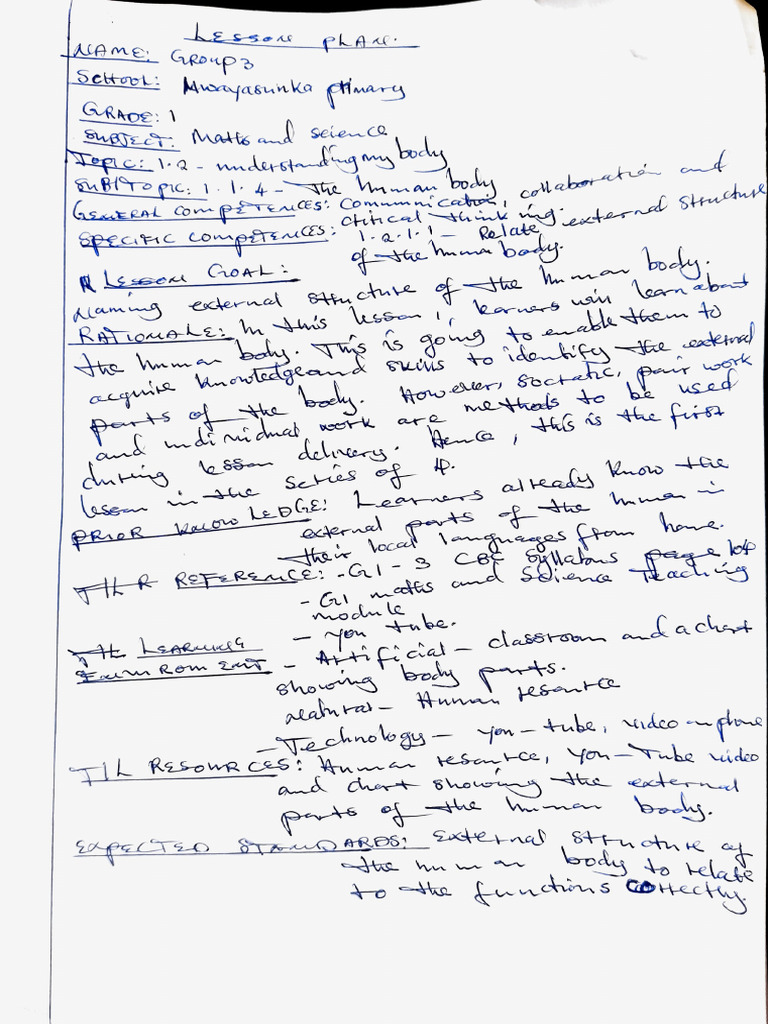 LESSON PLAN.
NAME: GROUP 3
SCHOOL: Mwayasunka primary
GRADE: 1
SUBJECT: Maths and science
TOPIC: 1.2 - understanding my body
SUB/TOPIC: 1.1.4 - The human body
GENERAL COMPETENCES: Communication, collaboration and critical thinking.
SPECIFIC COMPETENCES: 1.2.1.1 - Relate external structure
of the human body.
LESSON GOAL:
Naming external structure of the human body.
RATIONALE: In this lesson, learners will learn about
the human body. This is going to enable them to
acquire knowledge and skills to identify the external
parts of the body. However, socratic, pair work
and individual work are methods to be used
during lesson delivery. Hence, this is the first
lesson in the series of 4.
PRIOR KNOWLEDGE: Learners already know the
external parts of the human in
their local languages from home.
REFERENCE: - G1 - 3 CBC syllabus page
- G1 maths and Science Teaching
module
- you tube.
LEARNING
ENVIRONMENT - Artificial - classroom and a chart
showing body parts.
Natural - Human resource
- Technology - you - tube, video on phone
T/L RESOURCES: Human resource, you - Tube video
and chart showing the external
parts of the human body.
EXPECTED STANDARDS: external structure of
the human body to relate
to the functions correctly.